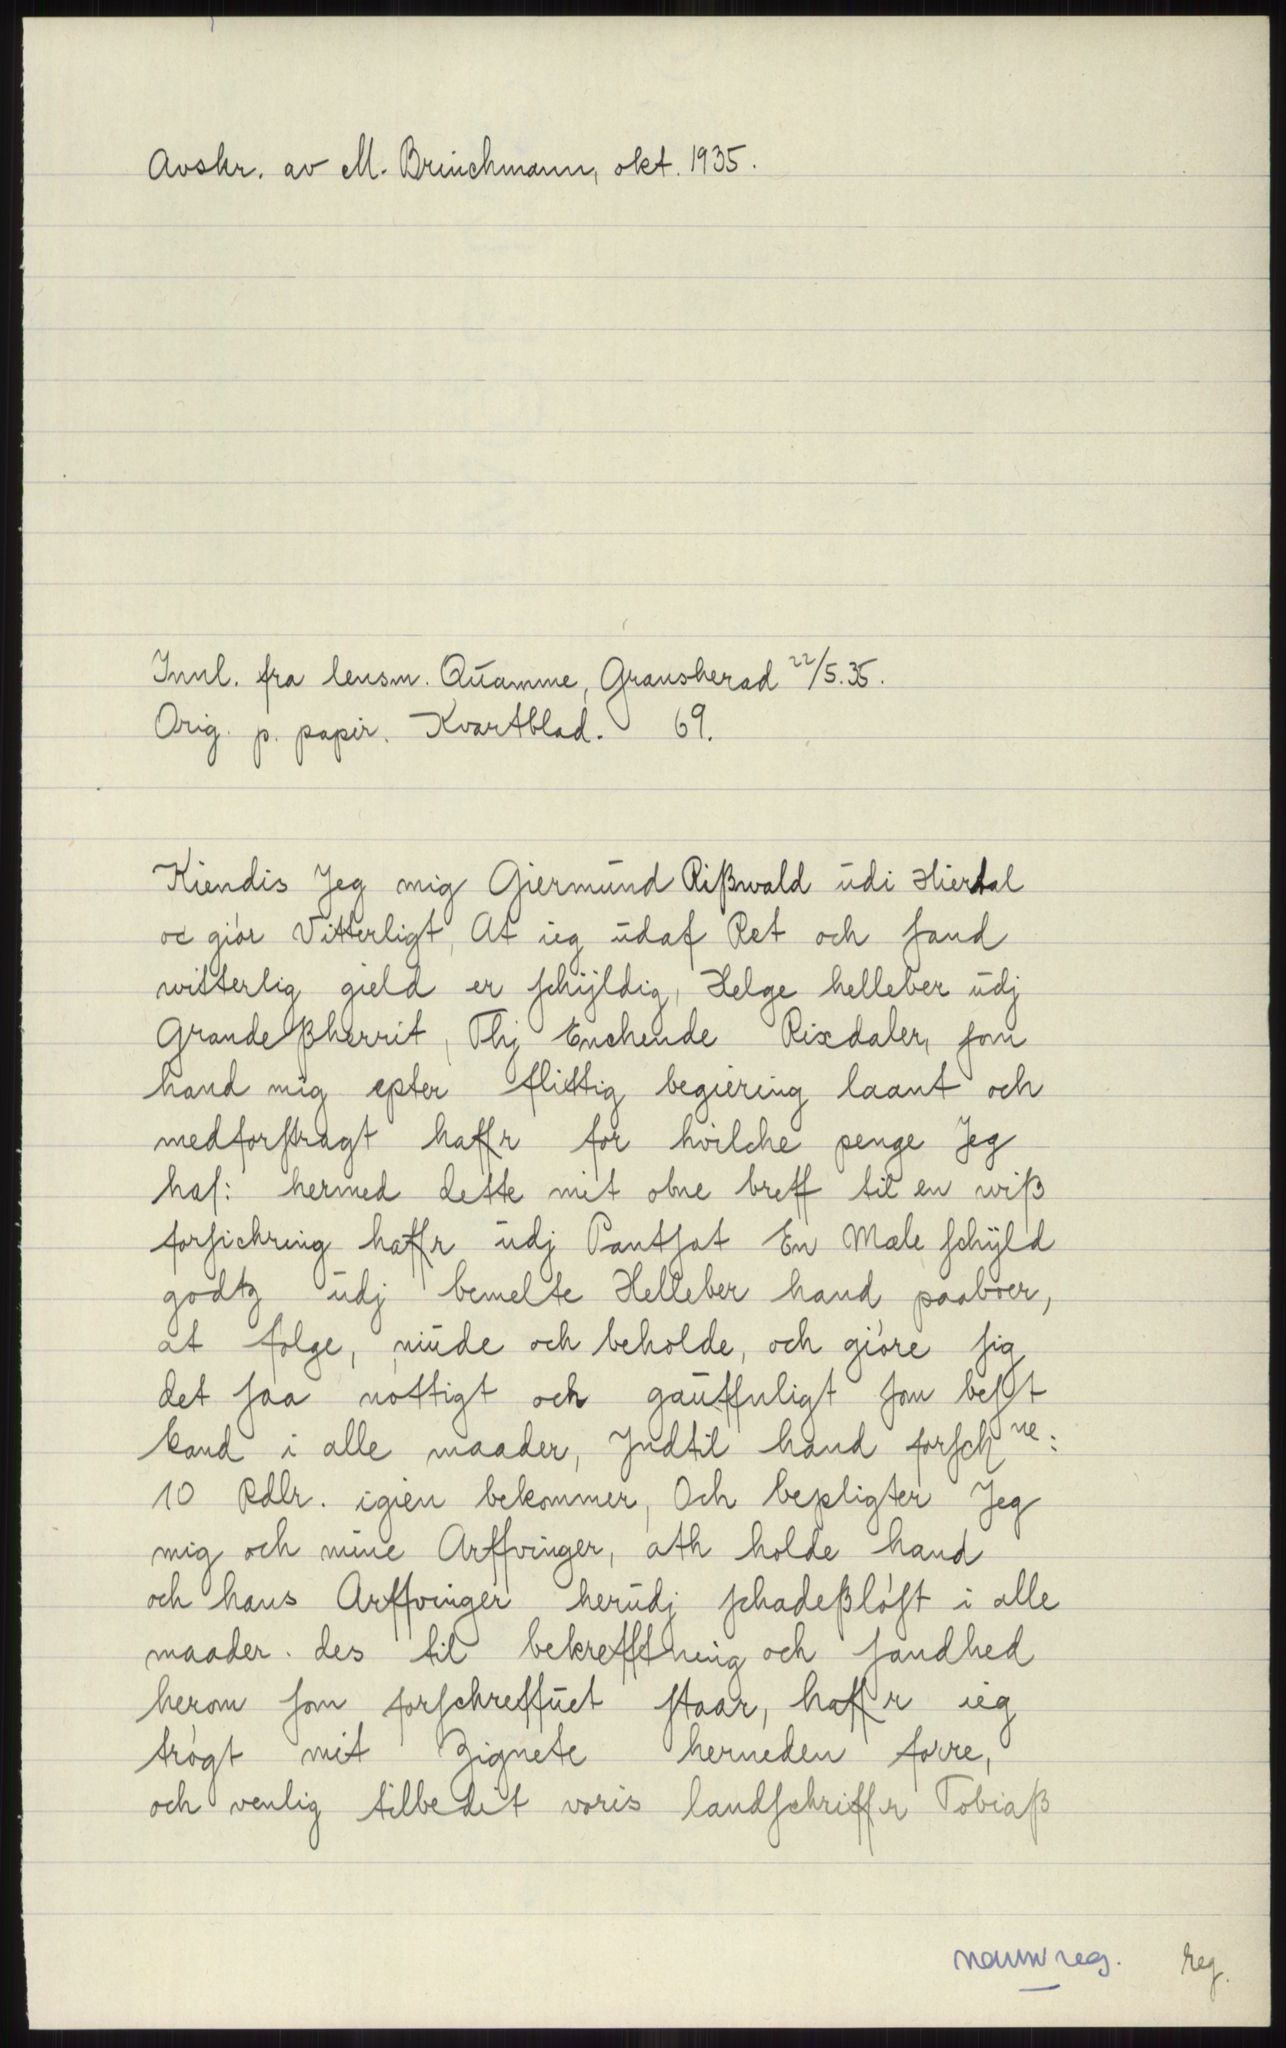 Avskr. av M. Brinchmann, okt. 1935.
Innl. fra lensm. Quamme, Gransherad 22/5.35.
Orig. p. papir. Kvartblad. 69.
Kiendis Jeg mig Giermund Rißwald udi Hierdal
oc giør Vitterligt, At ieg udaf Ret och sand
witterlig gield er schyldig, Helge helleber udj
Grandeßherrit, Thj Enchende Rixdaler, som
hand mig epter flittig begiering laant och
medforstragt haffr for hvilche penge Jeg
haf: hermed dette mit obne breff til en wiß
forsichring haffr udj Pantsat En Mæle schyld
godtz udj bemelte Helleber hand paaboer,
at følge, niude och beholde, och giøre sig
det saa nøttigt och gauffnligt som best
kand i alle maader, Jndtil hand forsch ne:
10 Rdlr. igien bekommer, Och bepligter Jeg
mig och mine Arffvinger, ath holde hand
och hans Arffvinger herudj schadeßløst i alle
maader. des til bekrefftning och sandhed
herom som forschreffuet staar, haffr ieg
trøgt mit Zignete herneden forre,
och venlig tilbedit voris landschriffr Tobiaß
navnreg. reg.